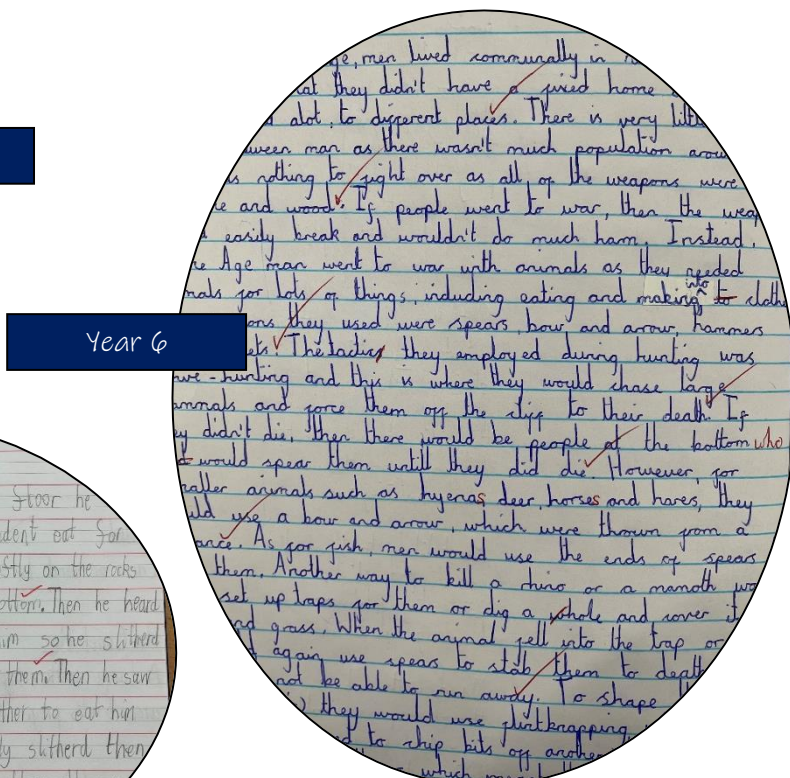 ge, men lived communally in
at they didn't have a fixed home
alot, to different places. There is very litt
ween man as there wasn't much population arou
is nothing to fight over as all of the weapons were
e and wood. If people went to war, then the weap
easily break and wouldn't do much harm. Instead,
e Age man went to war with animals as they needed
mals for lots of things, including eating and making into to clothe
ons they used were spears, bow and arrow, hammers
ets. The tactics they employed during hunting was
ve-hunting and this is where they would chase large
ammals and force them off the cliff to their death. If
ey didn't die, then there would be people at the bottom who
would spear them untill they did die. However, for
maller animals such as hyenas, deer, horses and hares, they
uld use a bow and arrow, which were thrown from a
ance. As for fish, men would use the ends of spears
them. Another way to kill a rhino or a mamoth wa
set up traps for them or dig a whole and cover it
nd grass. When the animal fell into the trap or
again use spears to stab them to death
not be able to run away. To shape
they would use flintknapping
to chip bits off anothe
which
Year 6
floor he
dent eat for
stly on the rocks
ottom. Then he heard
im so he slitherd
them. Then he saw
ther to eat him
ly slitherd then